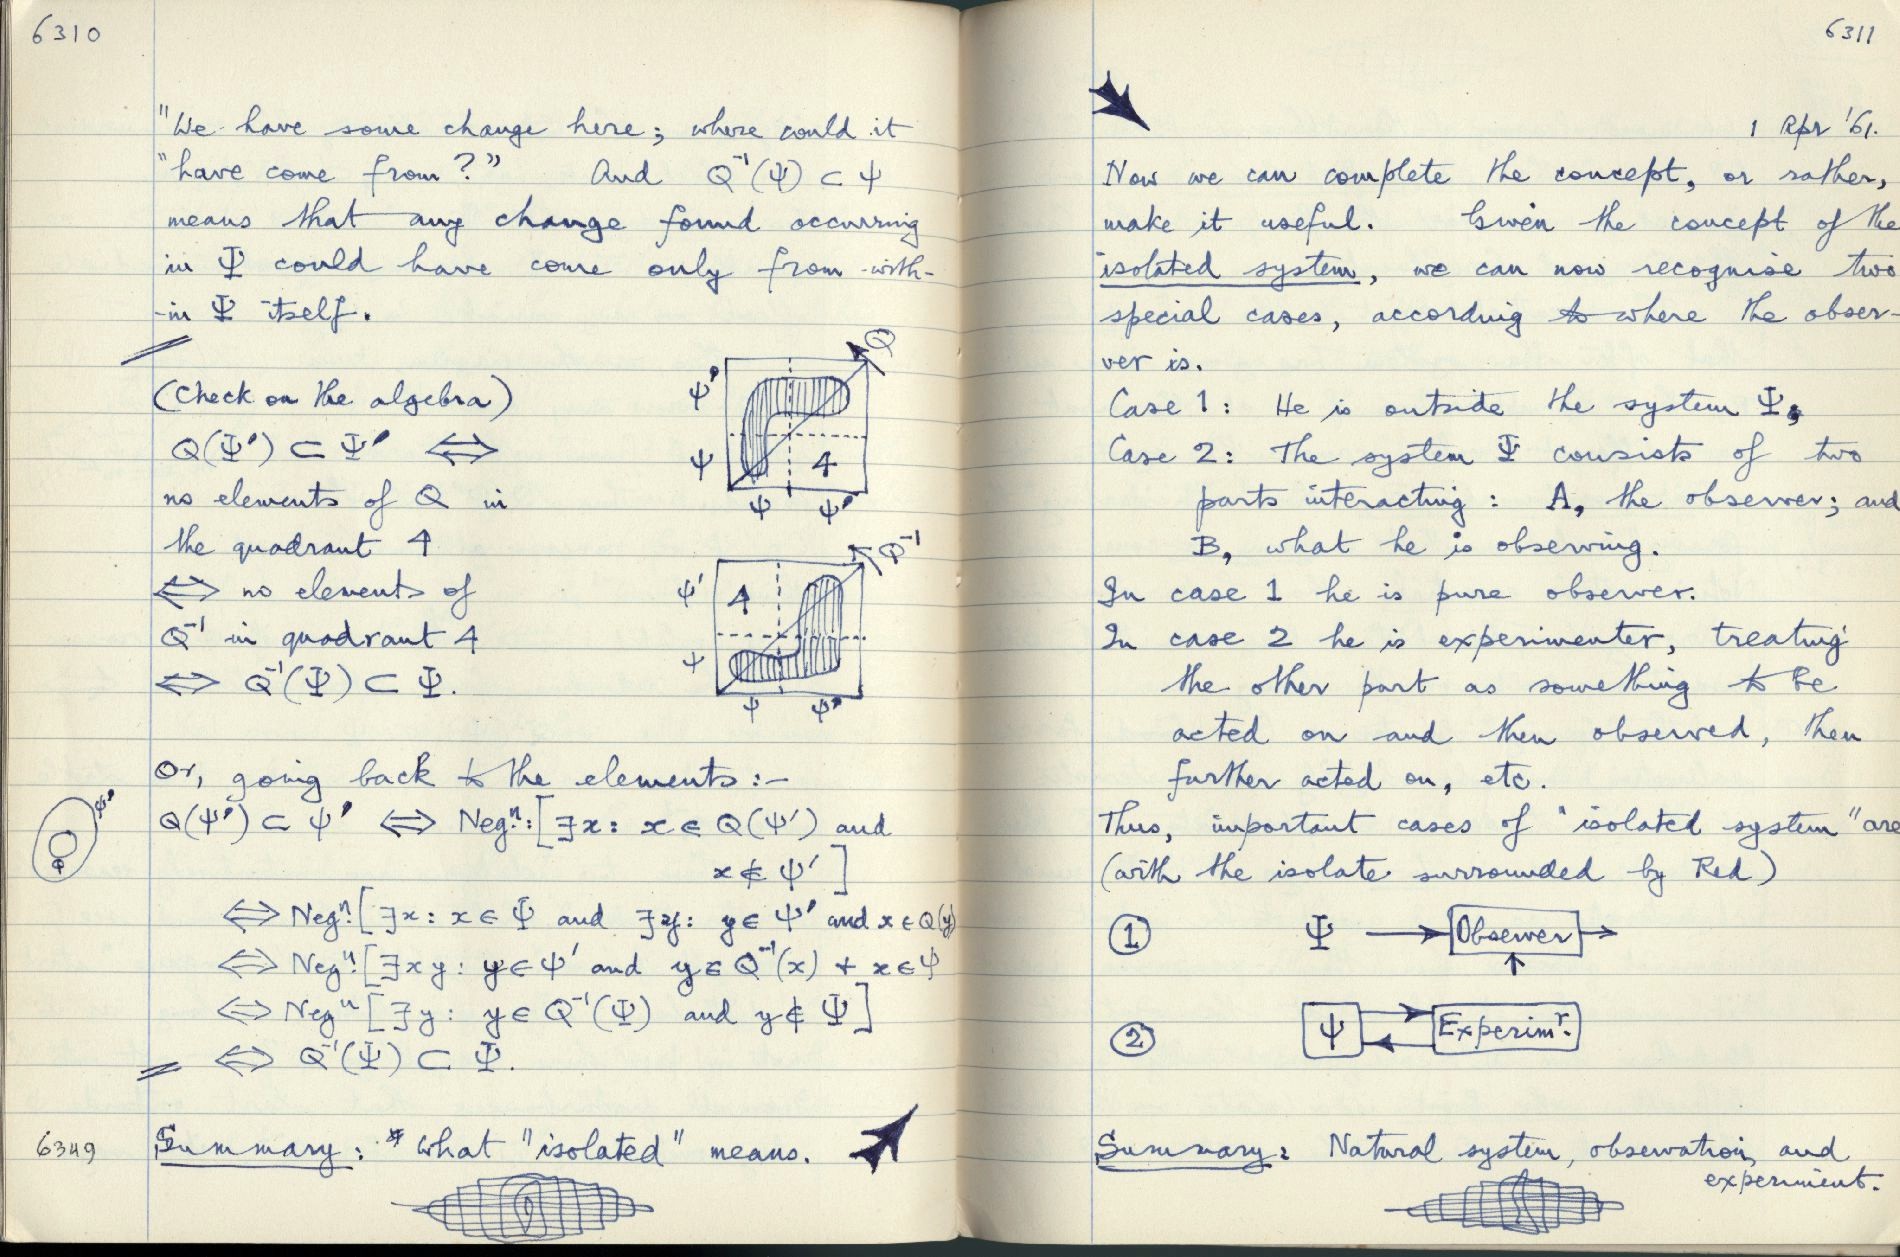 6310
"We have some change here; where could it
"have come from?" And Q⁻¹(Ψ) ⊂ Ψ
means that any change found occurring
in Ψ could have come only from with-
-in Ψ itself.
(Check on the algebra)
Q(Ψ') ⊂ Ψ' ⟺
no elements of Q in
the quadrant 4
⟺ no elements of
Q⁻¹ in quadrant 4
⟺ Q⁻¹(Ψ) ⊂ Ψ.
Q
Ψ'
Ψ 4
Ψ Ψ'
Q⁻¹
Ψ' 4
Ψ
Ψ Ψ'
Or, going back to the elements:-
Ψ'
Q(Ψ') ⊂ Ψ' ⟺ Negⁿ.:[∃x: x ∈ Q(Ψ') and
x ∉ Ψ']
⟺ Negⁿ.[∃x: x ∈ Ψ and ∃y: y ∈ Ψ' and x ∈ Q(y)
⟺ Negⁿ.[∃xy: y ∈ Ψ' and y ∈ Q⁻¹(x) + x ∈ Ψ
⟺ Negⁿ[∃y: y ∈ Q⁻¹(Ψ) and y ∉ Ψ]
⟺ Q⁻¹(Ψ) ⊂ Ψ.
6349
Summary: * What "isolated" means.
6311
1 Apr '61.
Now we can complete the concept, or rather,
make it useful. Given the concept of the
isolated system, we can now recognise two
special cases, according to where the obser-
ver is.
Case 1: He is outside the system Ψ;
Case 2: The system Ψ consists of two
parts interacting: A, the observer; and
B, what he is observing.
In case 1 he is pure observer.
In case 2 he is experimenter, treating
the other part as something to be
acted on and then observed, then
further acted on, etc.
Thus, important cases of "isolated system" are
(with the isolate surrounded by Red)
① Ψ → Observer →
↑
② Ψ Experimʳ.
Summary: Natural system, observation, and
experiment.